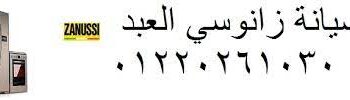 ZANUSSI
صيانة زانوسي العبد
٠١٢٢٠٢٦١٠٣٠